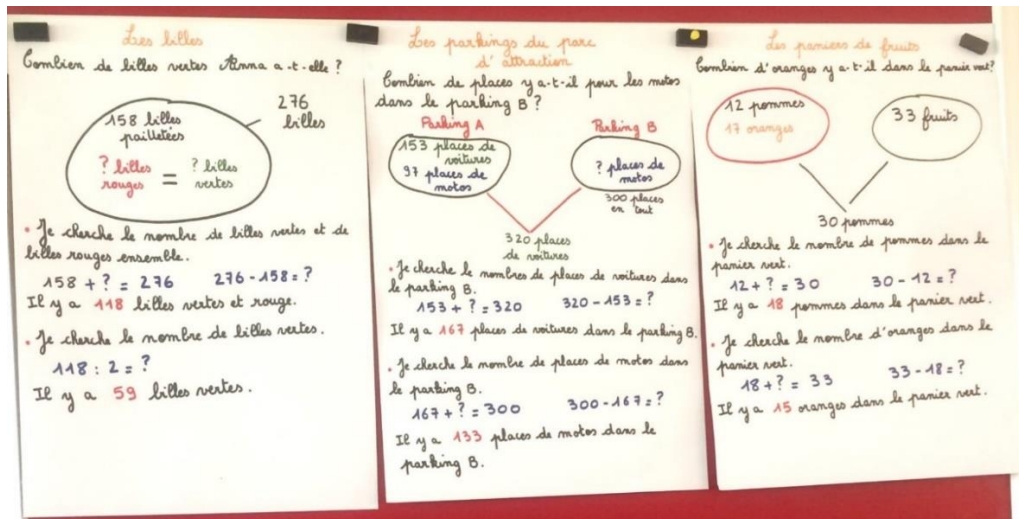 Les billes
Combien de billes vertes Anna a-t-elle ?
158 billes
pailletées
276
billes
? billes
rouges
=
? billes
vertes
• Je cherche le nombre de billes vertes et de
billes rouges ensemble.
158 + ? = 276 276 - 158 = ?
Il y a 118 billes vertes et rouge.
• Je cherche le nombre de billes vertes.
118 : 2 = ?
Il y a 59 billes vertes.
Les parkings du parc
d'attraction
Combien de places y a-t-il pour les motos
dans le parking B ?
Parking A
Parking B
153 places de
voitures
97 places de
motos
? places de
motos
300 places
en tout
320 places
de voitures
• Je cherche le nombres de places de voitures dans
le parking B.
153 + ? = 320 320 - 153 = ?
Il y a 167 places de voitures dans le parking B.
• Je cherche le nombre de places de motos dans
le parking B.
167 + ? = 300 300 - 167 = ?
Il y a 133 places de motos dans le
parking B.
Les paniers de fruits
Combien d'oranges y a-t-il dans le panier vert ?
12 pommes
17 oranges
33 fruits
30 pommes
• Je cherche le nombre de pommes dans le
panier vert.
12 + ? = 30 30 - 12 = ?
Il y a 18 pommes dans le panier vert.
• Je cherche le nombre d'oranges dans le
panier vert.
18 + ? = 33 33 - 18 = ?
Il y a 15 oranges dans le panier vert.